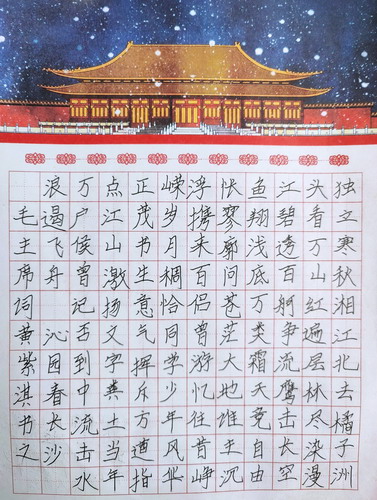 独立寒秋湘江北去橘子洲
头看万山红遍层林尽染漫
江碧透百舸争流鹰击长空
鱼翔浅底万类霜天竞自由
怅寥廓问苍茫大地谁主沉
浮携来百侣曾游忆往昔峥
嵘岁月稠恰同学少年风华
正茂书生意气挥斥方遒指
点江山激扬文字粪土当年
万户侯曾记否到中流击水
浪遏飞舟 沁园春长沙
毛主席词黄紫淇书之